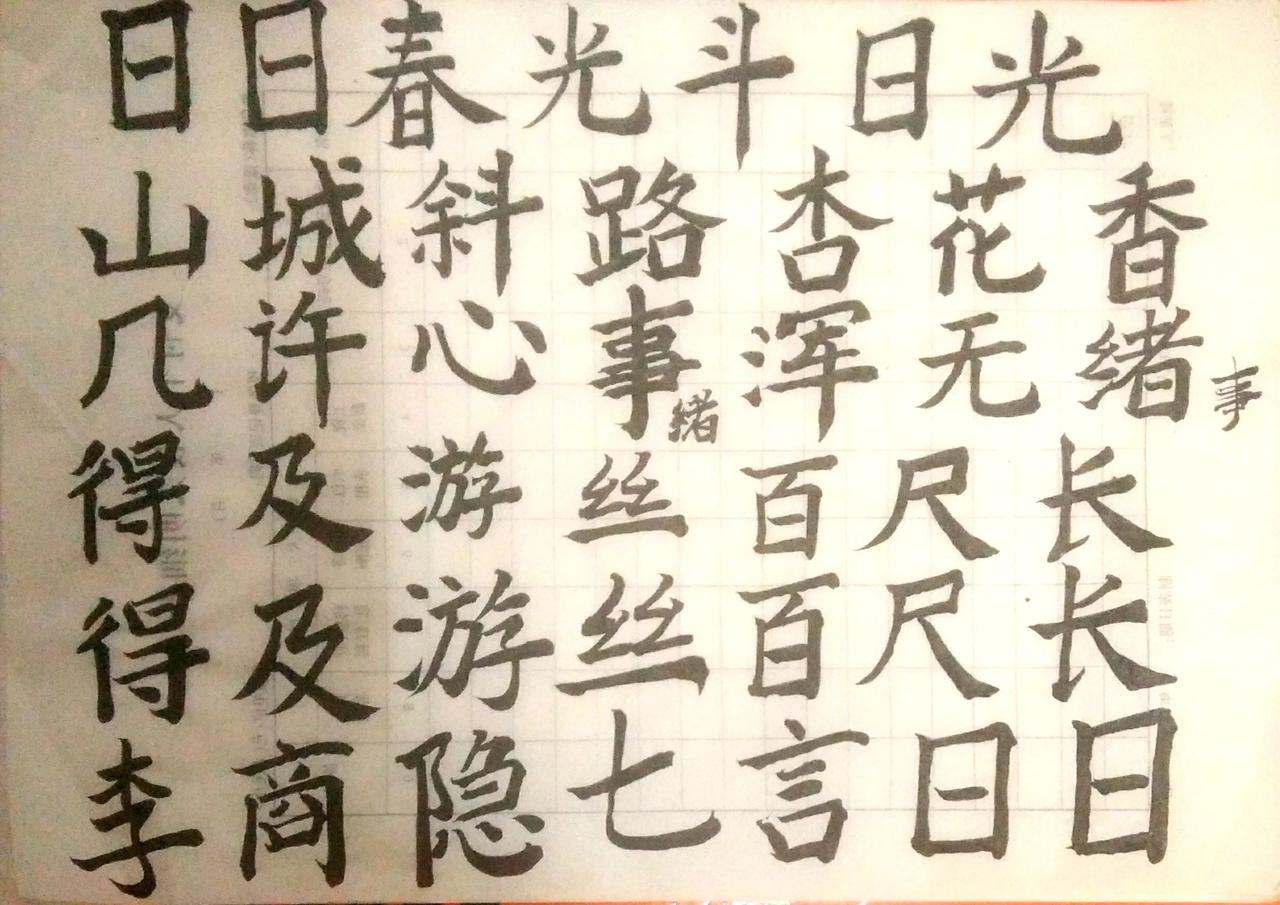 日日春光斗日光
山城斜路杏花香
几许心事浑无绪
绪
事
得及游丝百尺长
得及游丝百尺长
李商隐七言日日